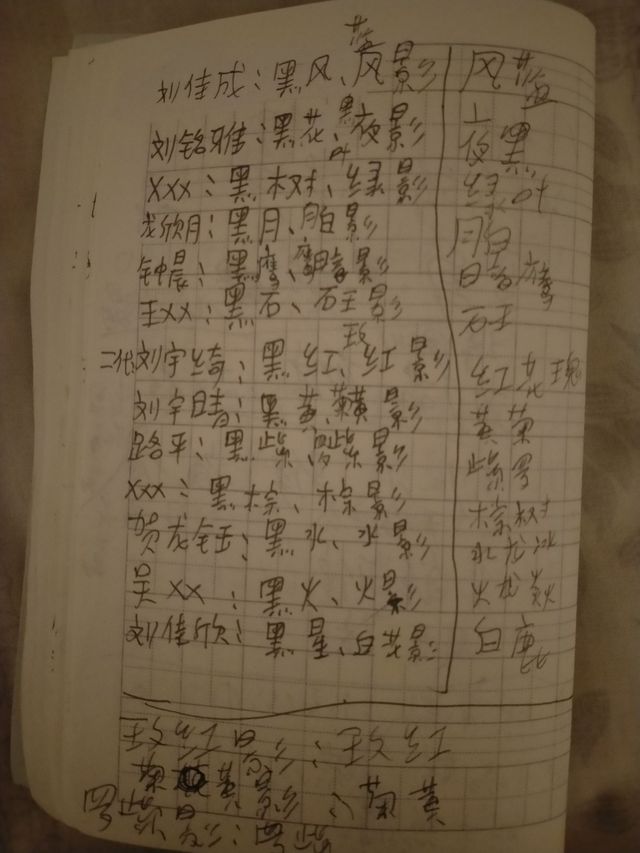 蓝
刘佳成：黑风、风影 风蓝
刘铭雅：黑花、黑夜影 夜黑
XXX：黑树、绿影 绿叶
叶
龙欣月：黑月、月白影 月白
钟晨：黑鹰、鹰暗影 暗鹰
王XX：黑石、石王影 石王
玫
二代刘宇绮：黑红、红影 红花瑰
刘宇晴：黑黄、黄影 黄菊
路平：黑紫、紫影 紫罗
XXX：黑棕、棕影 棕树
贺龙钰：黑水、水影 水龙冰
吴XX：黑火、火影 火龙炎火
刘佳欣：黑星、白花影 白鹿
玫红影：玫红
菊黄影：菊黄
罗紫影：罗紫